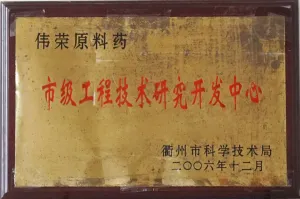 伟荣原料药
市级工程技术研究开发中心
衢州市科学技术局
二〇〇六年十二月